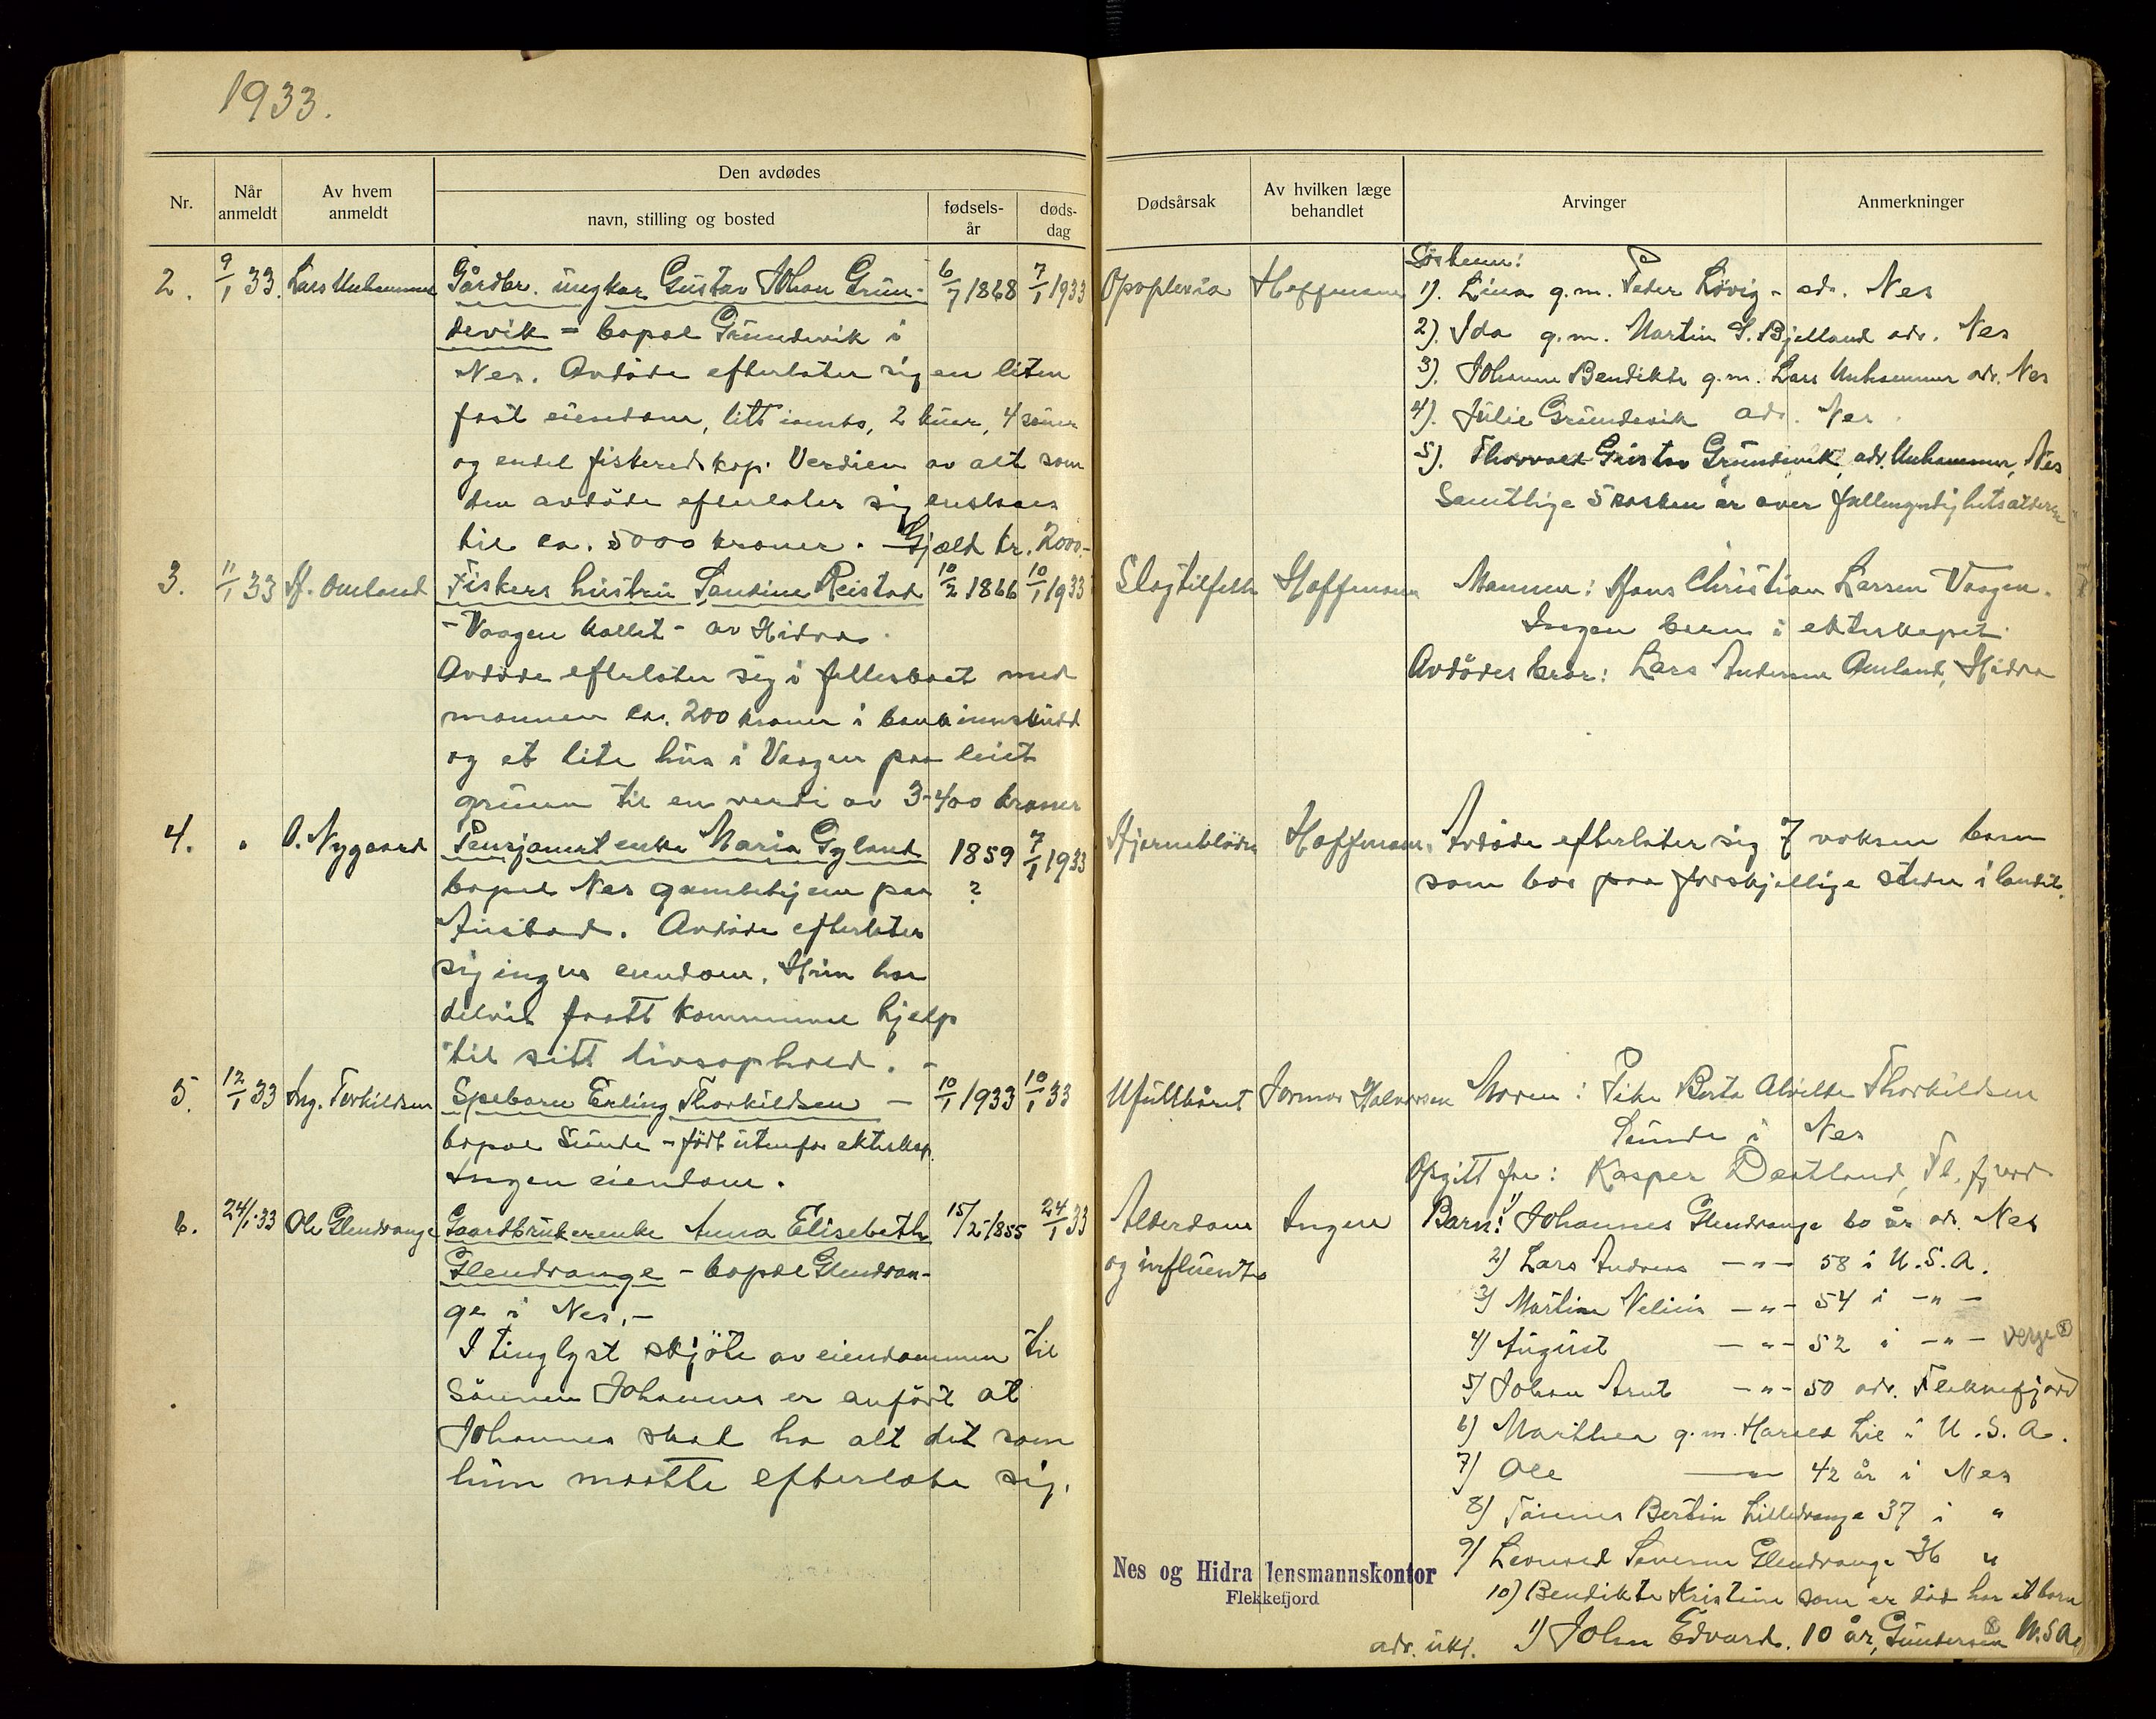 1933.
Nr.
Når anmeldt
Av hvem anmeldt
Den avdødes
navn, stilling og bosted
fødsels-år
døds-dag
Dødsårsak
Av hvilken læge behandlet
Arvinger
Anmerkninger
2. 9/1 33. Lars Unhammer Gårdbr. ungkar Gustav Johan Grun- 6/7 1868 7/1 1933
devik - bopæl Grundevik i
Nes. Avdøde efterlater sig en liten
fast eiendom, litt innbo, 2 kuer, 4 sauer
og endel fiskeredskap. Verdien av alt som
den avdøde efterlater sig anslaaes
til ca. 5000 kroner. - Gjæld kr. 2000.-
3. 11/1 33 H. Omland Fiskers hustru Sandine Reistad 10/2 1866 10/1 1933
- Vaagen kallet - av Hidra.
Avdøde efterlater sig i fellesboet med
mannen ca. 200 kroner i bankinnskudd
og et lite hus i Vaagen paa leiet
grunn til en verdi av 3-400 kroner
4. " O. Nygaard Pensjonert enke Maria Gyland 1859 7/1 1933
bopæl Nes gamlehjem paa ?
Avdøde efterlater
sig ingen eiendom. Hun har
delvis faatt kommunal hjelp
til sitt livsophold. -
5. 12/1 33 Ing. Torkildsen Spebarn Erling Thorkildsen - 10/1 1933 10/1 33
bopæl Sunde - født utenfor ekteskap.
Ingen eiendom.
6. 24/1.33 Ole Glendrange Gaardbrukerenke Anna Elisebeth 15/2-1855 24/1 33
Glendrange - bopæl Glendran-
ge i Nes. -
I tinglyst skjöte av eiendommen til
sönnen Johannes er anfört at
Johannes skal ha alt det som
hun maatte efterlate sig.
Søsken:
Opoplexia Hoffmann 1). Lina g.m. Peder Løvig - adr. Nes
2). Ida g.m. Martin S. Bjelland adr. Nes
3). Johanne Bendikte g.m. Lars Unhammer adr. Nes
4). Julie Grundevik adr. Nes.
5). Thorvald Gustav Grundevik, adr. Unhammer, Nes
Samtlige søsken er over fullmyndighetsalderen
Slagtilfelle Hoffmann Mannen: Hans Christian Larsen Vaagen.
Ingen barn i ekteskapet.
Avdødes bror: Lars Andersen Omland, Hidra
Hjerneblødn. Hoffmann. Avdøde efterlater sig 7 voksen barn
som bor paa forskjellige steder i landet.
Ufullbåret Jormor Halvorsen Moren: Pike Berta Alvilde Thorkildsen
Sunde i Nes
Opgitt far: Kasper Deatland, Fl.fjord
Alderdom Ingen Barn: 1) Johannes Glendrange 60 år adr. Nes
og influenta 2) Lars Andreas -"- 58 i U.S.A.
3) Martin Velius -"- 54 i -"-
4) August -"- 52 i -"- verge (x)
5) Johan Arnt -"- 50 adr. Flekkefjord
6) Marthea g.m. Harald Lie i U.S.A.
7) Ole -"- 42 år i Nes
8) Tønnes Bertin Lilledrange 37 i "
9) Leonard Severin Glendrange 36 "
10) Bendikte Kristine som er död har et barn
adr. ukj. 1) John Edvard. 10 år, Gundersen (x) U.S.A.
Nes og Hidra lensmannskontor
Flekkefjord